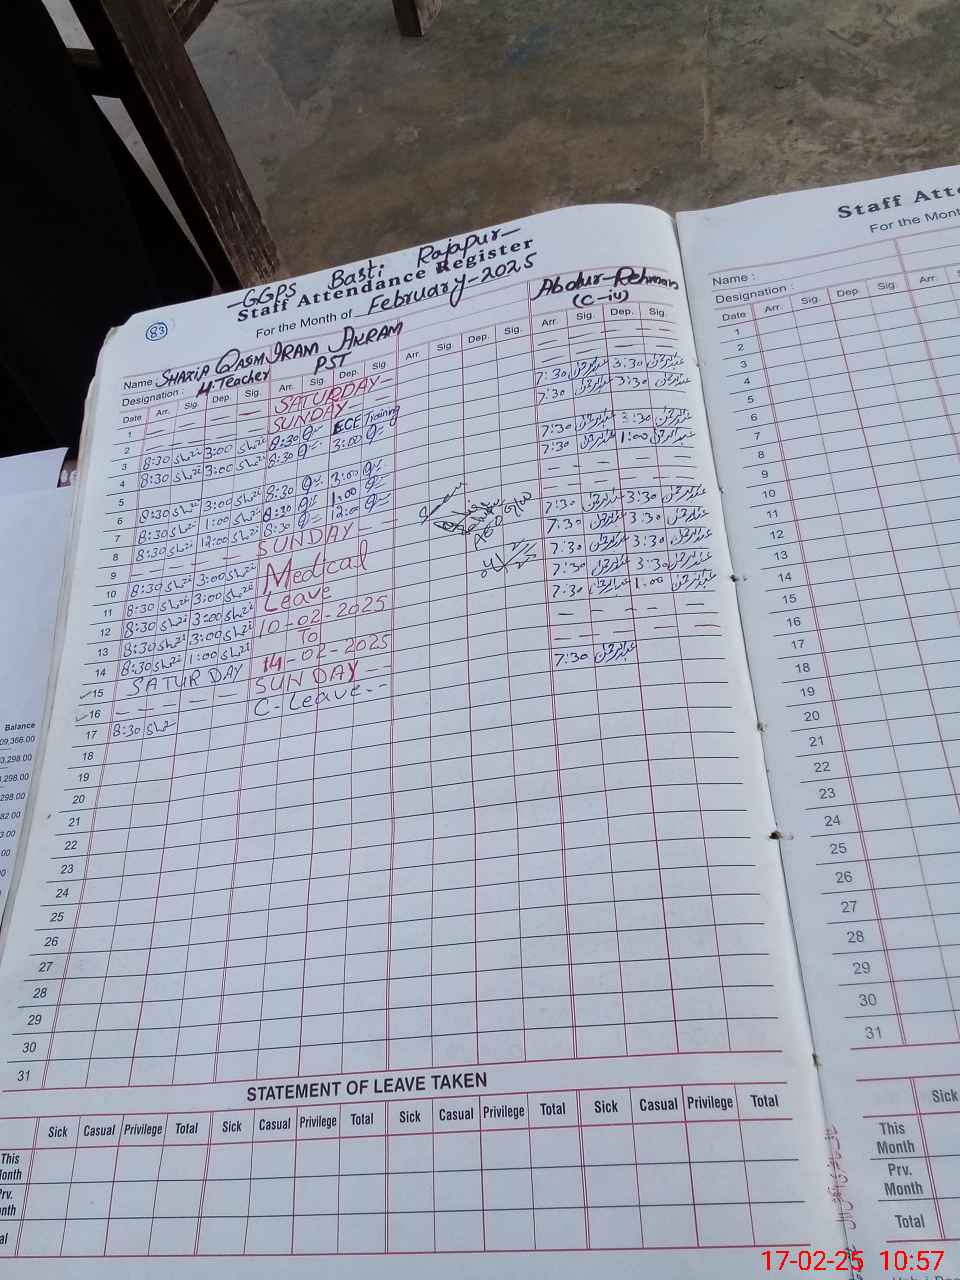 83
-GGPS Basti Rajapur-
Staff Attendance Register
For the Month of February-2025
Name SHAZIA QASM IRAM AKRAM Abdur-Rehman
Designation : H.Teacher PST (C-iv)
Date Arr. Sig. Dep. Sig. Arr. Sig. Dep. Sig. Arr. Sig. Dep. Sig. Arr. Sig. Dep. Sig.
1 — — — — SATURDAY — — — —
2 — — — — SUNDAY — — — —
3 8:30 3:00 8:30 ECE Training 7:30 عبدالرحمٰن 3:30 عبدالرحمٰن
4 8:30 3:00 8:30 3:00 7:30 عبدالرحمٰن 3:30 عبدالرحمٰن
5
6 8:30 3:00 8:30 3:00 7:30 عبدالرحمٰن 3:30 عبدالرحمٰن
7 8:30 1:00 8:30 1:00 7:30 عبدالرحمٰن 1:00 عبدالرحمٰن
8 8:30 12:00 8:30 12:00 — — — —
9 — — — — SUNDAY — — — — — —
10 8:30 3:00 Medical 7:30 عبدالرحمٰن 3:30 عبدالرحمٰن
11 8:30 3:00 Leave 7:30 عبدالرحمٰن 3:30 عبدالرحمٰن
12 8:30 3:00 10-02-2025 7:30 عبدالرحمٰن 3:30 عبدالرحمٰن
13 8:30 3:00 To 7:30 عبدالرحمٰن 3:30 عبدالرحمٰن
14 8:30 1:00 14-02-2025 7:30 عبدالرحمٰن 1:00 عبدالرحمٰن
15 SATURDAY — — — —
16 — — — — SUNDAY — — — — — —
17 8:30 C-Leave-- 7:30 عبدالرحمٰن
18
19
20
21
22
23
24
25
26
27
28
29
30
31
STATEMENT OF LEAVE TAKEN
Sick Casual Privilege Total Sick Casual Privilege Total Sick Casual Privilege Total Sick Casual Privilege Total
This Month
Prv.
Staff Atte
For the Mont
Name :
Designation :
Date Arr. Sig. Dep. Sig. Arr.
1
2
3
4
5
6
7
8
9
10
11
12
13
14
15
16
17
18
19
20
21
22
23
24
25
26
27
28
29
30
31
Sick
This Month
Prv. Month
Total
Balance
09,366.00
3,298.00
,298.00
298.00
82.00
3.00
00
17-02-25 10:57